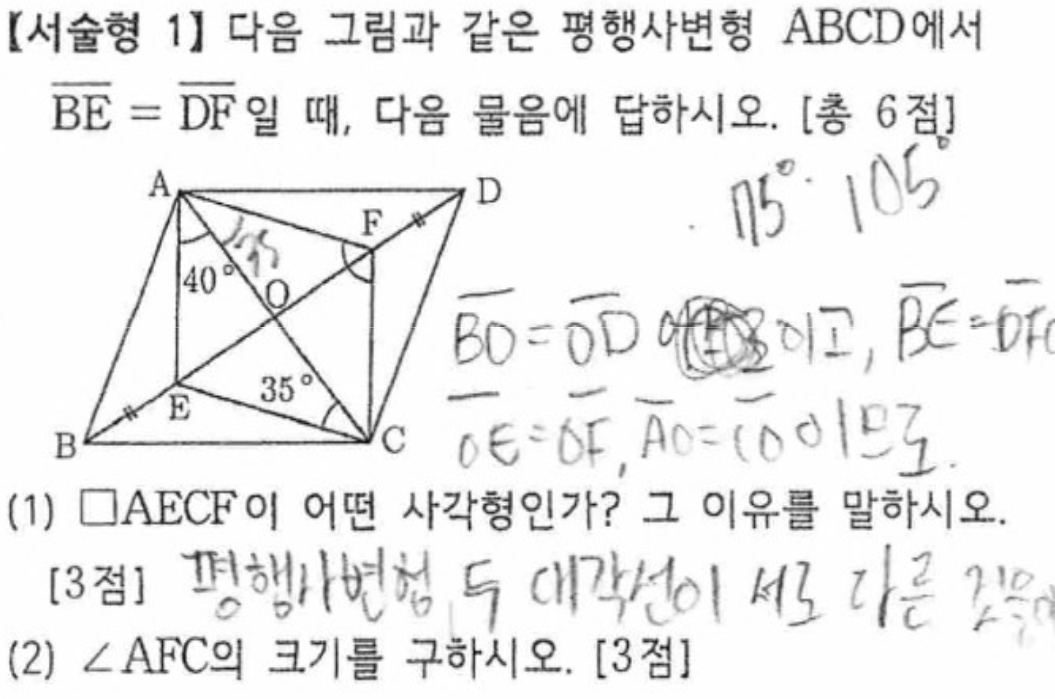 【서술형 1】 다음 그림과 같은 평행사변형 ABCD에서
BE = DF일 때, 다음 물음에 답하시오. [총 6점]
75° 105°
A
D
F
40°
O
BO=OD 이고, BE=DF
35°
E
B
C
OE=OF, AO=CO이므로.
(1) □AECF이 어떤 사각형인가? 그 이유를 말하시오.
[3점] 평행사변형, 두 대각선이 서로 다른
(2) ∠AFC의 크기를 구하시오. [3점]